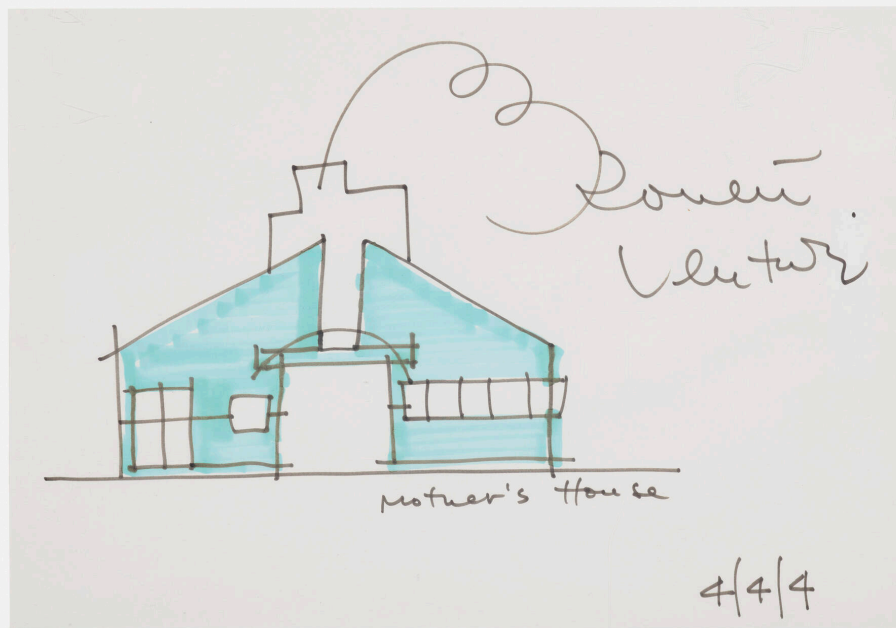 Robert
Venturi
Mother's House
4/4/4